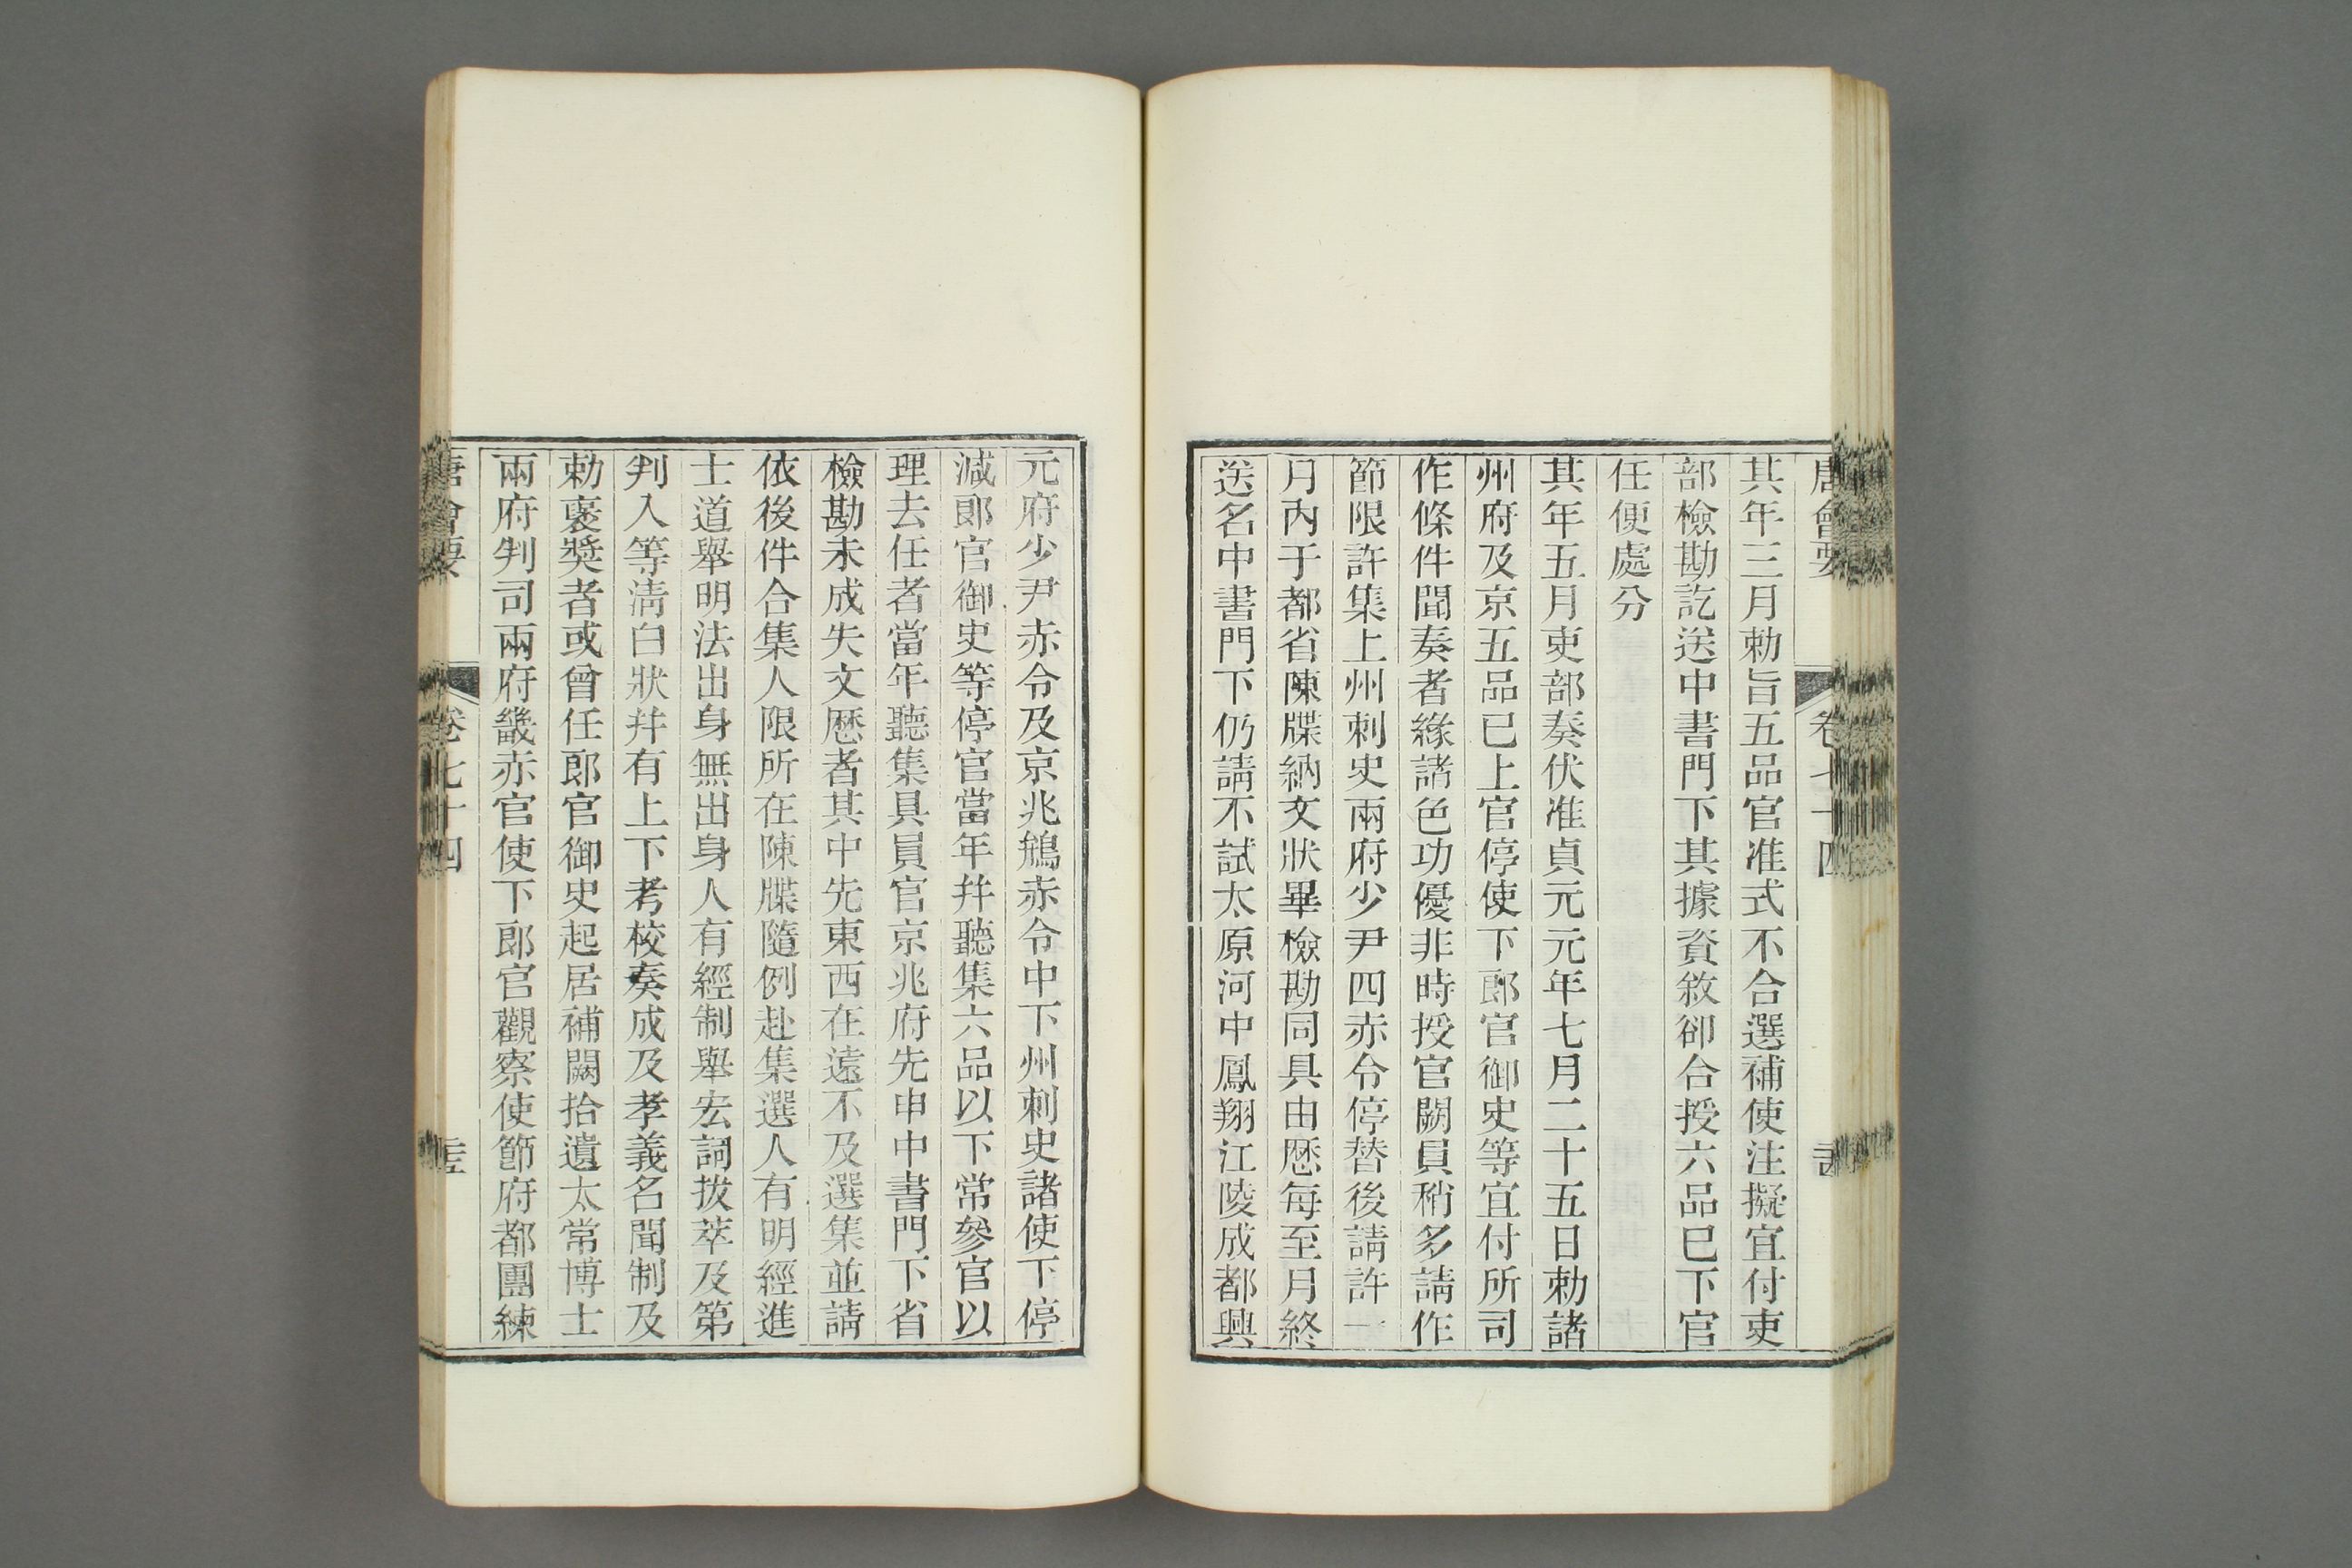 唐會要 卷七十四
其年三月勅旨五品官准式不合選補使注擬宜付吏
部檢勘訖送中書門下其據資敘卻合授六品已下官
任便處分
其年五月吏部奏伏准貞元元年七月二十五日勅諸
州府及京五品已上官停使下郎官御史等宜付所司
作條件聞奏者緣諸色功優非時授官闕員稍多請作
節限許集上州刺史兩府少尹四赤令停替後請許一
月內于都省陳牒納文狀畢檢勘同具由歷每至月終
送名中書門下仍請不試太原河中鳳翔江陵成都興
元府少尹赤令及京兆鴻赤令中下州刺史諸使下停
減郎官御史等停官當年幷聽集六品以下常參官以
理去任者當年聽集具員官京兆府先申中書門下省
檢勘未成失文歷者其中先東西在遠不及選集並請
依後件合集人限所在陳牒隨例赴集選人有明經進
士道舉明法出身無出身人有經制舉宏詞拔萃及第
判入等清白狀幷有上下考校奏成及孝義名聞制及
勅褒獎者或曾任郎官御史起居補闕拾遺太常博士
兩府判司兩府畿赤官使下郎官觀察使節府都團練
唐會要 卷七十四